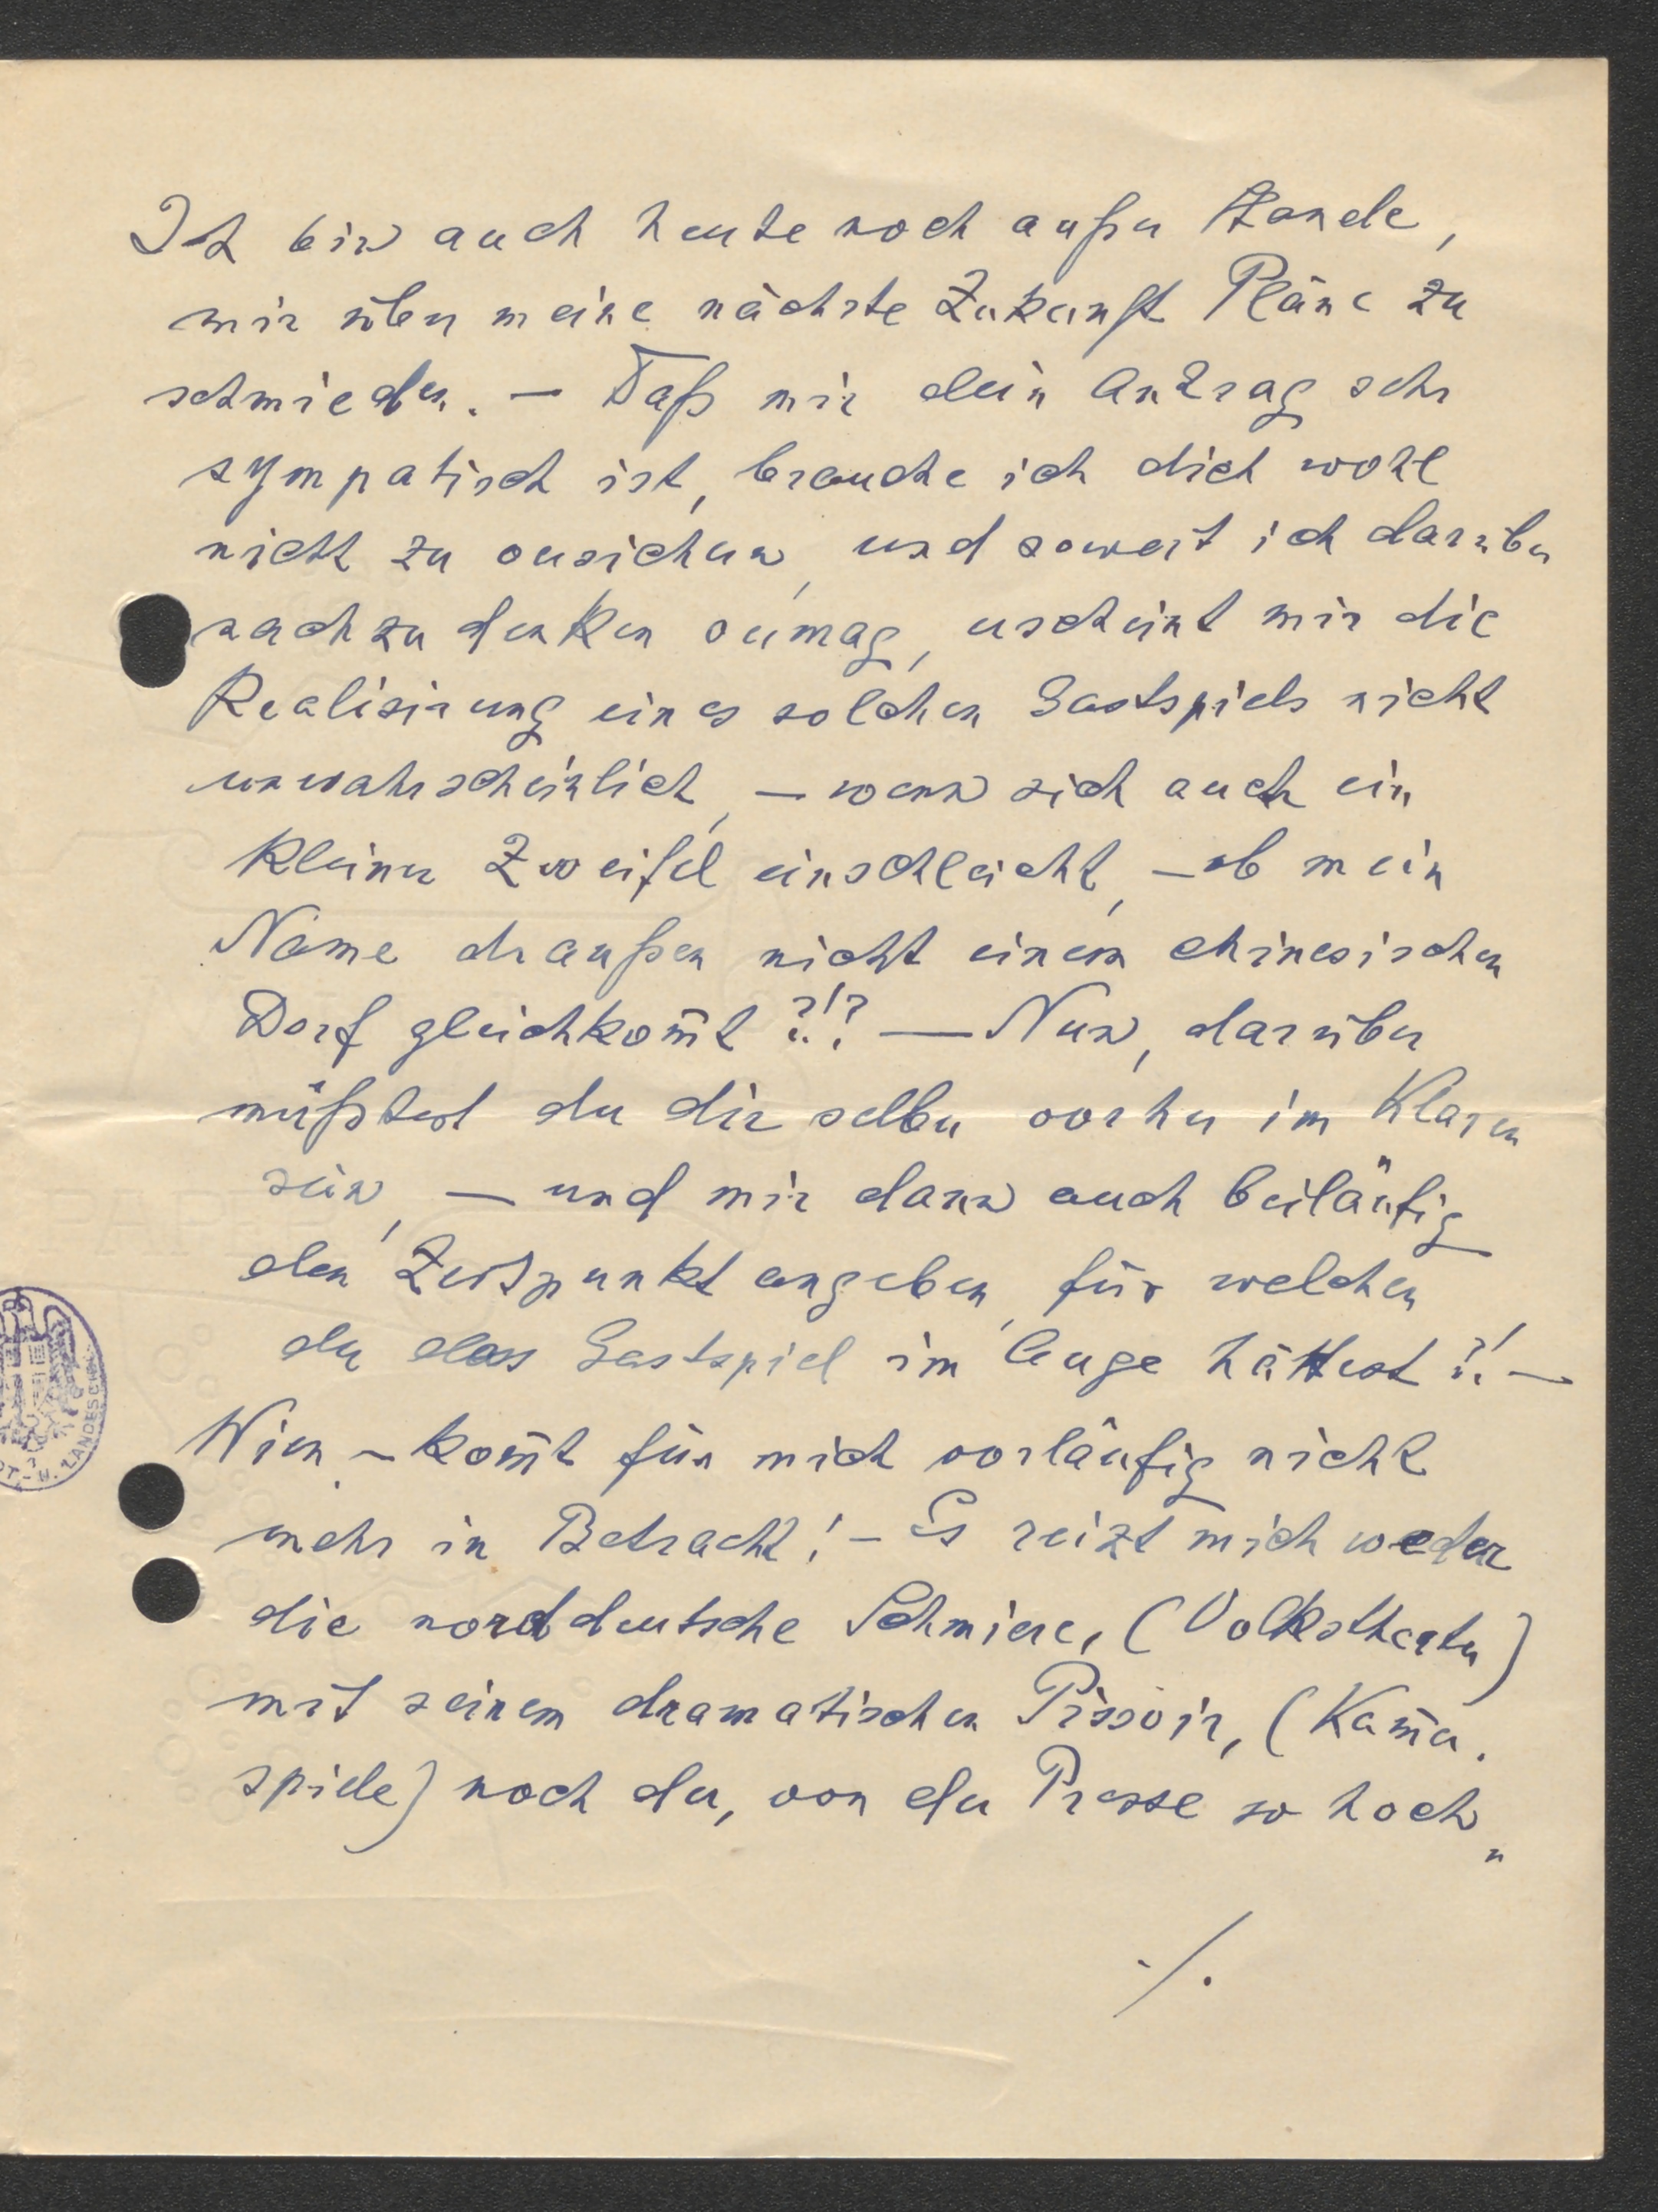 Ich bin auch heute noch außer Stande,
mir über meine nächste Zukunft Pläne zu
schmieden. — Daß mir dein Antrag sehr
sympatisch ist, brauche ich dich wohl
nicht zu versichern, und soweit ich darüber
nachzudenken vermag, erscheint mir die
Realisirung eines solchen Gastspiels nicht
unwahrscheinlich, — wenn sich auch ein
kleiner Zweifel einschleicht, — ob mein
Name draußen nicht einem chinesischen
Dorf gleichkom̄t ?!? — Nun, darüber
müßtest du dir selber vorher im Klaren
sein, — und mir dann auch beiläufig
den Zeitpunkt angeben, für welchen
du das Gastspiel im Auge hättest ?! —
Wien — kom̄t für mich vorläufig nicht
mehr in Betracht! — Es reizt mich weder
die norddeutsche Schmiere, (Volkstheater)
mit seinem dramatischen Pissoir, (Kam̄er-
spiele) noch der, von der Presse so hoch "
./.
DT.-N. LANDESCHA